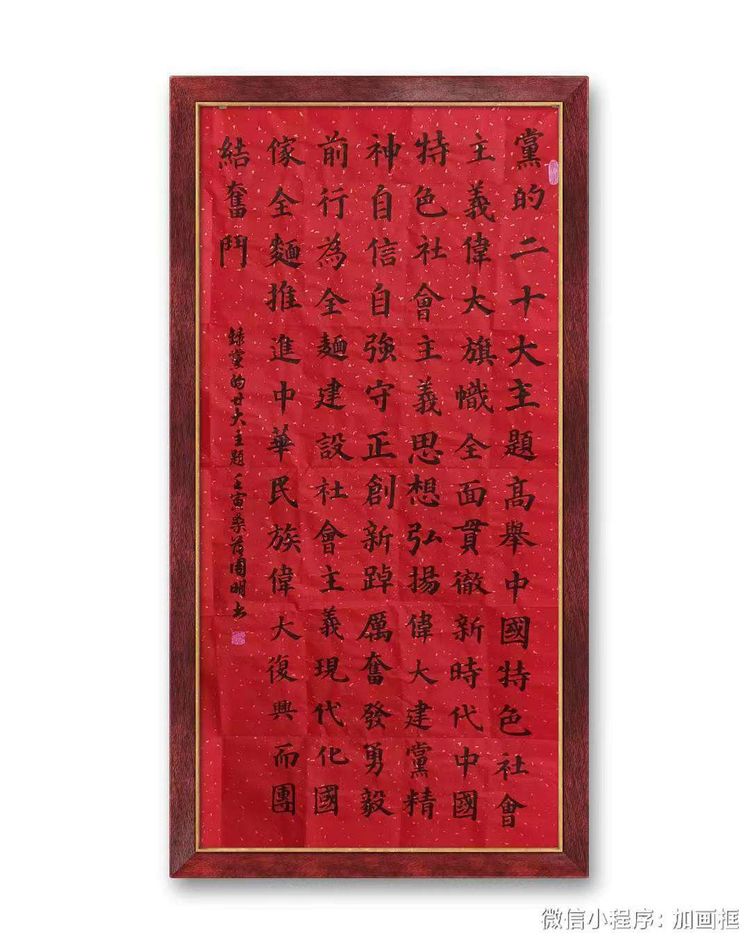 黨的二十大主題高舉中國特色社會
主義偉大旗幟全面貫徹新時代中國
特色社會主義思想弘揚偉大建黨精
神自信自強守正創新踔厲奮發勇毅
前行為全麵建設社會主義現代化國
傢全麵推進中華民族偉大復興而團
結奮鬥
録黨的廿大主題壬寅桑國明书
微信小程序：加画框